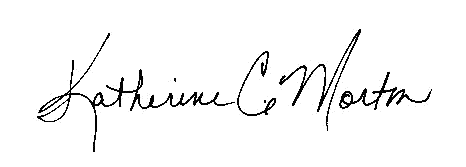 Katherine C Morton